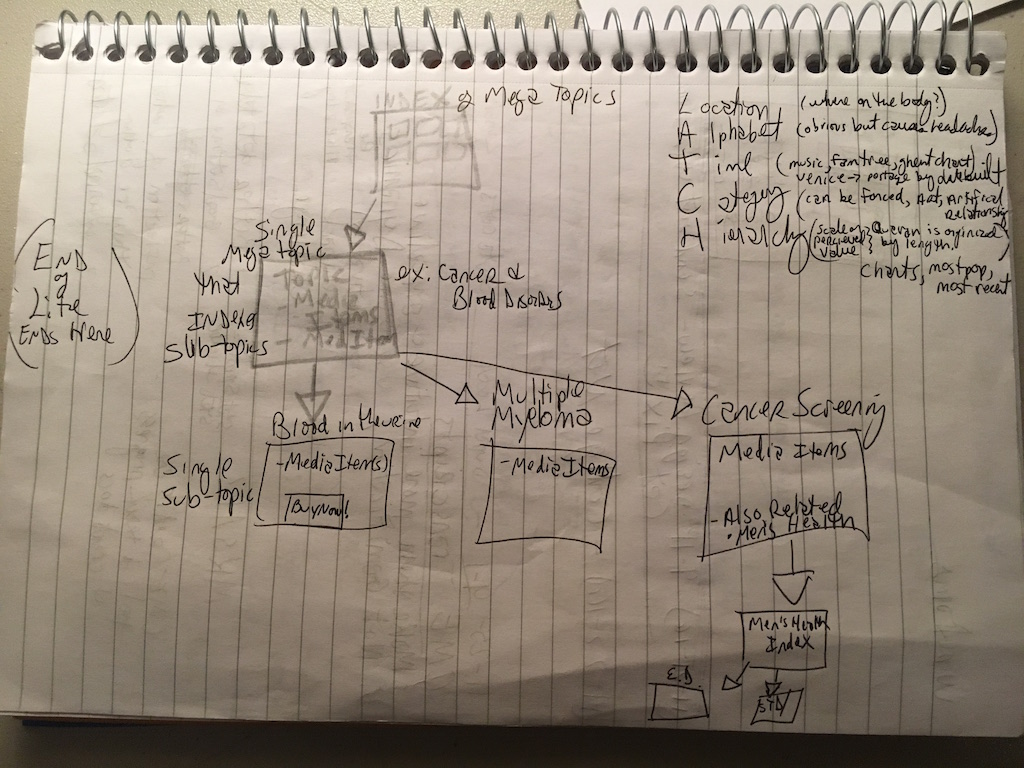 INDEX of Mega Topics
Location (where on the body?)
Alphabet (obvious but causes headaches)
Time (music, fam tree, ghent chart)
Venice → portage by date built
Category (can be forced, Art, Artifical
Relationship
Hierarchy (scale or percieved value) Queran is orginized
by length,
Charts, most pop,
most recent
(END
of
Life
ENDS Here)
Single
Mega topic
that
INDEXes
Sub-topics
ex: Cancer &
Blood Disorders
Blood in the urine
Single
Sub-topic
-Media Items
Buy Now!
Multiple
Myeloma
-Media Items
Cancer Screening
Media Items
-Also Related
• Men's Health
Men's Health
Index
E.D
STD